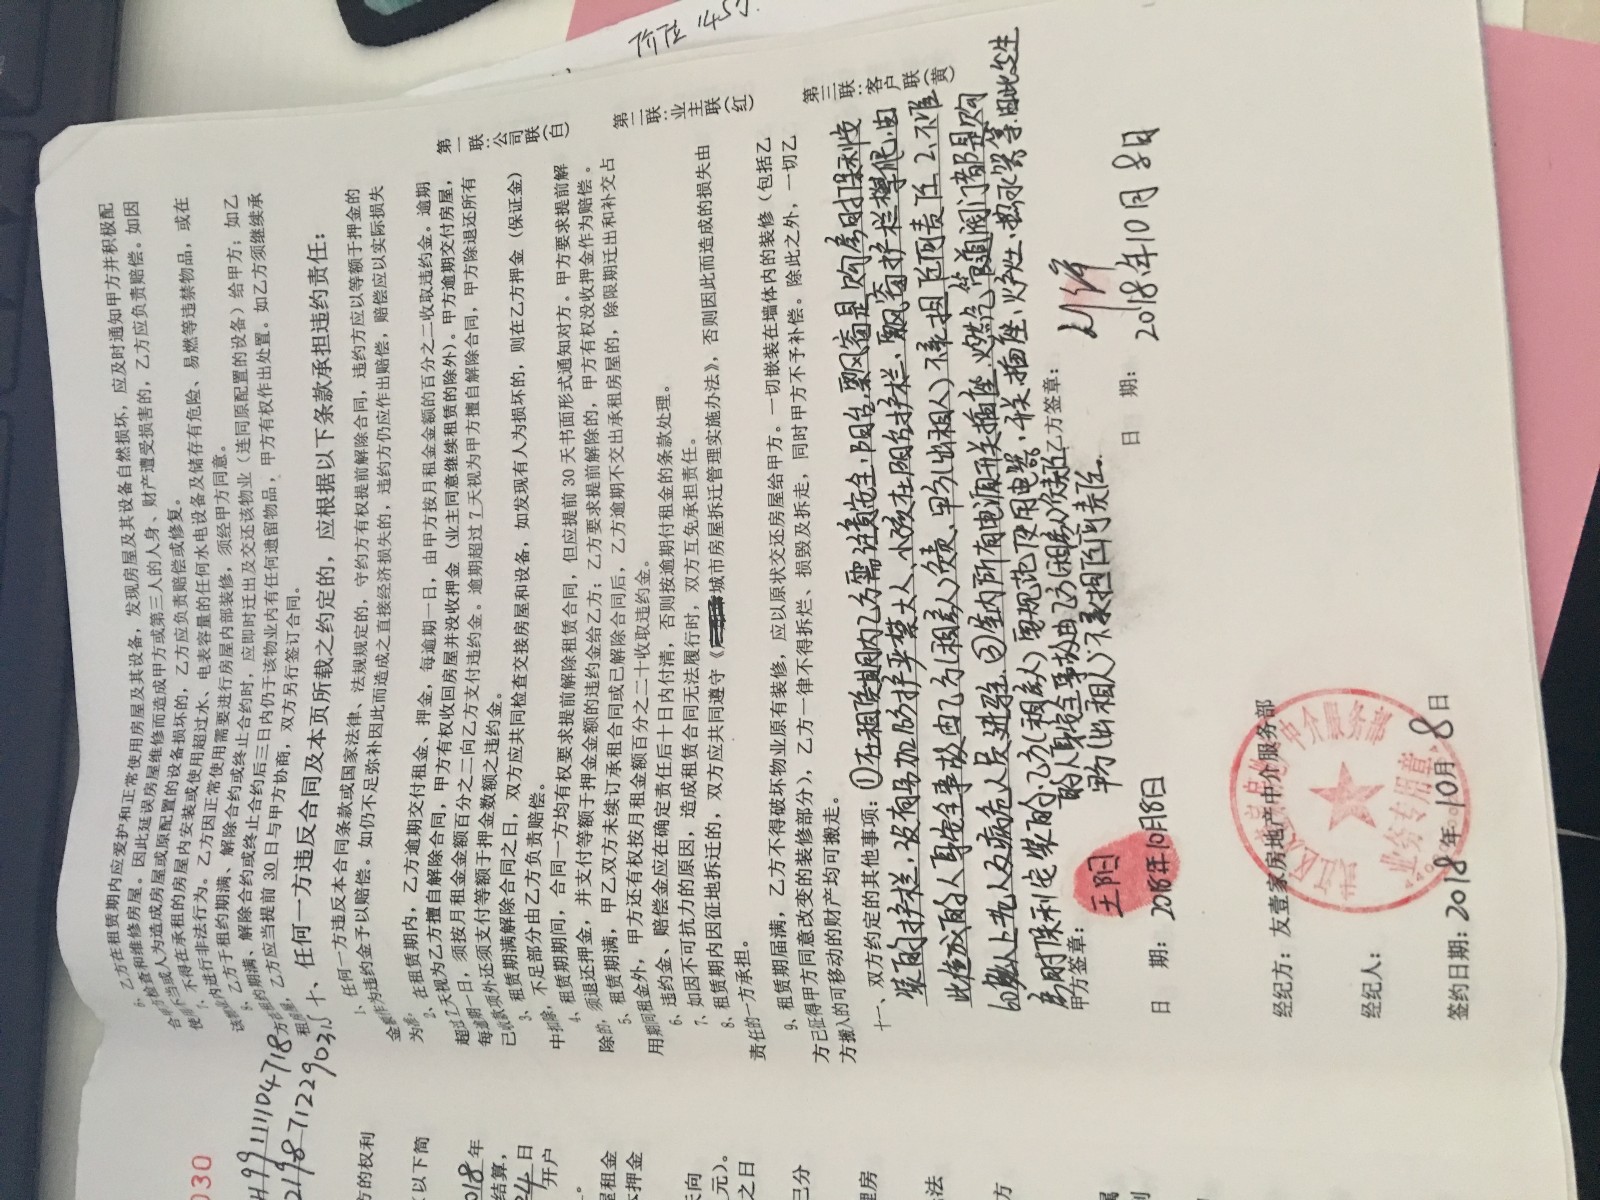 6、乙方在租赁期内应爱护和正常使用房屋及其设备，发现房屋及其设备自然损坏，应及时通知甲方并积极配
合甲方检查和维修房屋。因此延误房屋维修而造成甲方或第三人的人身、财产遭受损害的，乙方应负责赔偿。如因
使用不当或人为造成房屋或原配置的设备损坏的，乙方应负责赔偿或修复。
7、不得在承租的房屋内安装或使用超过水、电表容量的任何水电设备及储存有危险、易燃等违禁物品，或在
该物业内进行非法行为。乙方因正常使用需要进行房屋内部装修，须经甲方同意。
8、乙方于租约期满、解除合约或终止合约时，应即时迁出及交还该物业（连同原配置的设备）给甲方；如乙
方的期满、解除合约或终止合约后三日内仍于该物业内有任何遗留物品，甲方有权作出处置。如乙方须继续承
租房屋，乙方应当提前30日与甲方协商，双方另行签订合同。
十、任何一方违反合同及本页所载之约定的，应根据以下条款承担违约责任：
1、任何一方违反本合同条款或国家法律、法规规定的，守约方有权提前解除合同，违约方应以等额于押金的
金额作为违约金予以赔偿。如仍不足弥补因此而造成之直接经济损失的，违约方仍应作出赔偿，赔偿应以实际损失
为准。
2、在租赁期内，乙方逾期交付租金、押金，每逾期一日，由甲方按月租金金额的百分之二收取违约金。逾期
超过7天视为乙方擅自解除合同，甲方有权收回房屋并没收押金（业主同意继续租赁的除外）。甲方逾期交付房屋，
每逾期一日，须按月租金金额百分之二向乙方支付违约金。逾期超过7天视为甲方擅自解除合同，甲方除退还所有
已收款项外还须支付等额于押金数额之违约金。
3、租赁期满解除合同之日，双方应共同检查交接房屋和设备，如发现有人为损坏的，则在乙方押金（保证金）
中扣除，不足部分由乙方负责赔偿。
4、租赁期期间，合同一方均有权要求提前解除租赁合同，但应提前30天书面形式通知对方。甲方要求提前解
除的，须退还押金，并支付等额于押金金额的违约金给乙方；乙方要求提前解除的，甲方有权没收押金作为赔偿。
5、租赁期满，甲乙双方未续订承租合同或已解除合同后，乙方逾期不交出承租房屋的，除限期迁出和补交占
用期间租金外，甲方还有权按月租金额百分之二十收取违约金。
6、违约金、赔偿金应在确定责任后十日内付清，否则按逾期付租金的条款处理。
7、如因不可抗力的原因，造成租赁合同无法履行时，双方互免承担责任。
8、租赁期内因征地拆迁的，双方应共同遵守《城市房屋拆迁管理实施办法》，否则因此而造成的损失由
责任的一方承担。
9、租赁期届满，乙方不得破坏物业原有装修，应以原状交还房屋给甲方。一切嵌装在墙体内的装修（包括乙
方已征得甲方同意改变的装修部分），乙方一律不得拆烂、损毁及拆走，同时甲方不予补偿。除此之外，一切乙
方搬入的可移动的财产均可搬走。
十一、双方约定的其他事项：①在租赁期内乙方需注意安全，阳台，飘窗是购房时保利安
装的护栏，没有另加防护严禁大人、小孩在阳台护栏，飘窗护栏攀爬，由
此造成的人身安全事故由乙方（租客人）负责，甲方（出租人）不承担任何责任。2.不准
60岁以上老人及病危人员进驻。③室内所有电源开关插座，燃气管道阀门都是购
房时保利安装的，乙方（租客人）要规范使用电器，开关插座，火灶，热水器等，因此发生
的人身安全事故由乙方（租客人）负责
甲方（出租人）不承担任何责任。
甲方签章：王阳
乙方签章：
日期：2018年10月8日
日期：2018年10月8日
经纪方：友壹家房地产中介服务部
经纪人：
签约日期：2018年10月8日
中介服务部
业务专用章
第一联：公司联（白）
第二联：业主联（红）
第三联：客户联（黄）
030
方的权利
以下简
018年
结算，
24日
开户
屋租金
押金
天向
元）。
之日
己分
理房
法
方